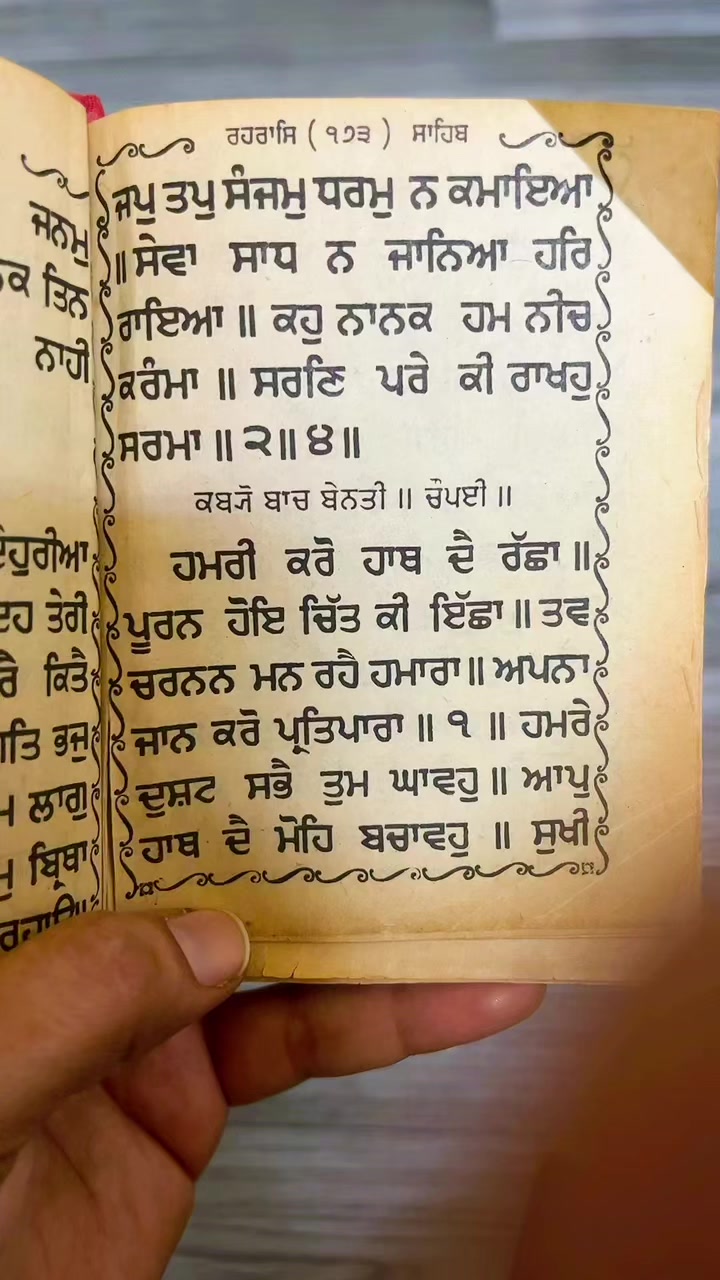 ਜਨਮੁ
ਤਿਨ
ਨਾਹੀ
ਤੇਰੀ
ਕਿਤੈ
ਭਜੁ
ਲਾਗੁ
ਬ੍ਰਿਥਾ
ਰਹਰਾਸਿ ( ੧੭੩ ) ਸਾਹਿਬ
ਜਪੁ ਤਪੁ ਸੰਜਮੁ ਧਰਮੁ ਨ ਕਮਾਇਆ
॥ ਸੇਵਾ ਸਾਧ ਨ ਜਾਨਿਆ ਹਰਿ
ਰਾਇਆ ॥ ਕਹੁ ਨਾਨਕ ਹਮ ਨੀਚ
ਕਰੰਮਾ ॥ ਸਰਣਿ ਪਰੇ ਕੀ ਰਾਖਹੁ
ਸਰਮਾ ॥ ੨॥ ੪॥
ਕਬ੍ਯੋ ਬਾਚ ਬੇਨਤੀ ॥ ਚੌਪਈ ॥
ਹਮਰੀ ਕਰੋ ਹਾਥ ਦੈ ਰੱਛਾ ॥
ਪੂਰਨ ਹੋਇ ਚਿੱਤ ਕੀ ਇੱਛਾ ॥ ਤਵ
ਚਰਨਨ ਮਨ ਰਹੈ ਹਮਾਰਾ॥ ਅਪਨਾ
ਜਾਨ ਕਰੋ ਪ੍ਰਤਿਪਾਰਾ ॥ ੧ ॥ ਹਮਰੇ
ਦੁਸ਼ਟ ਸਭੈ ਤੁਮ ਘਾਵਹੁ ॥ ਆਪੁ
ਹਾਥ ਦੈ ਮੋਹਿ ਬਚਾਵਹੁ ॥ ਸੁਖੀ